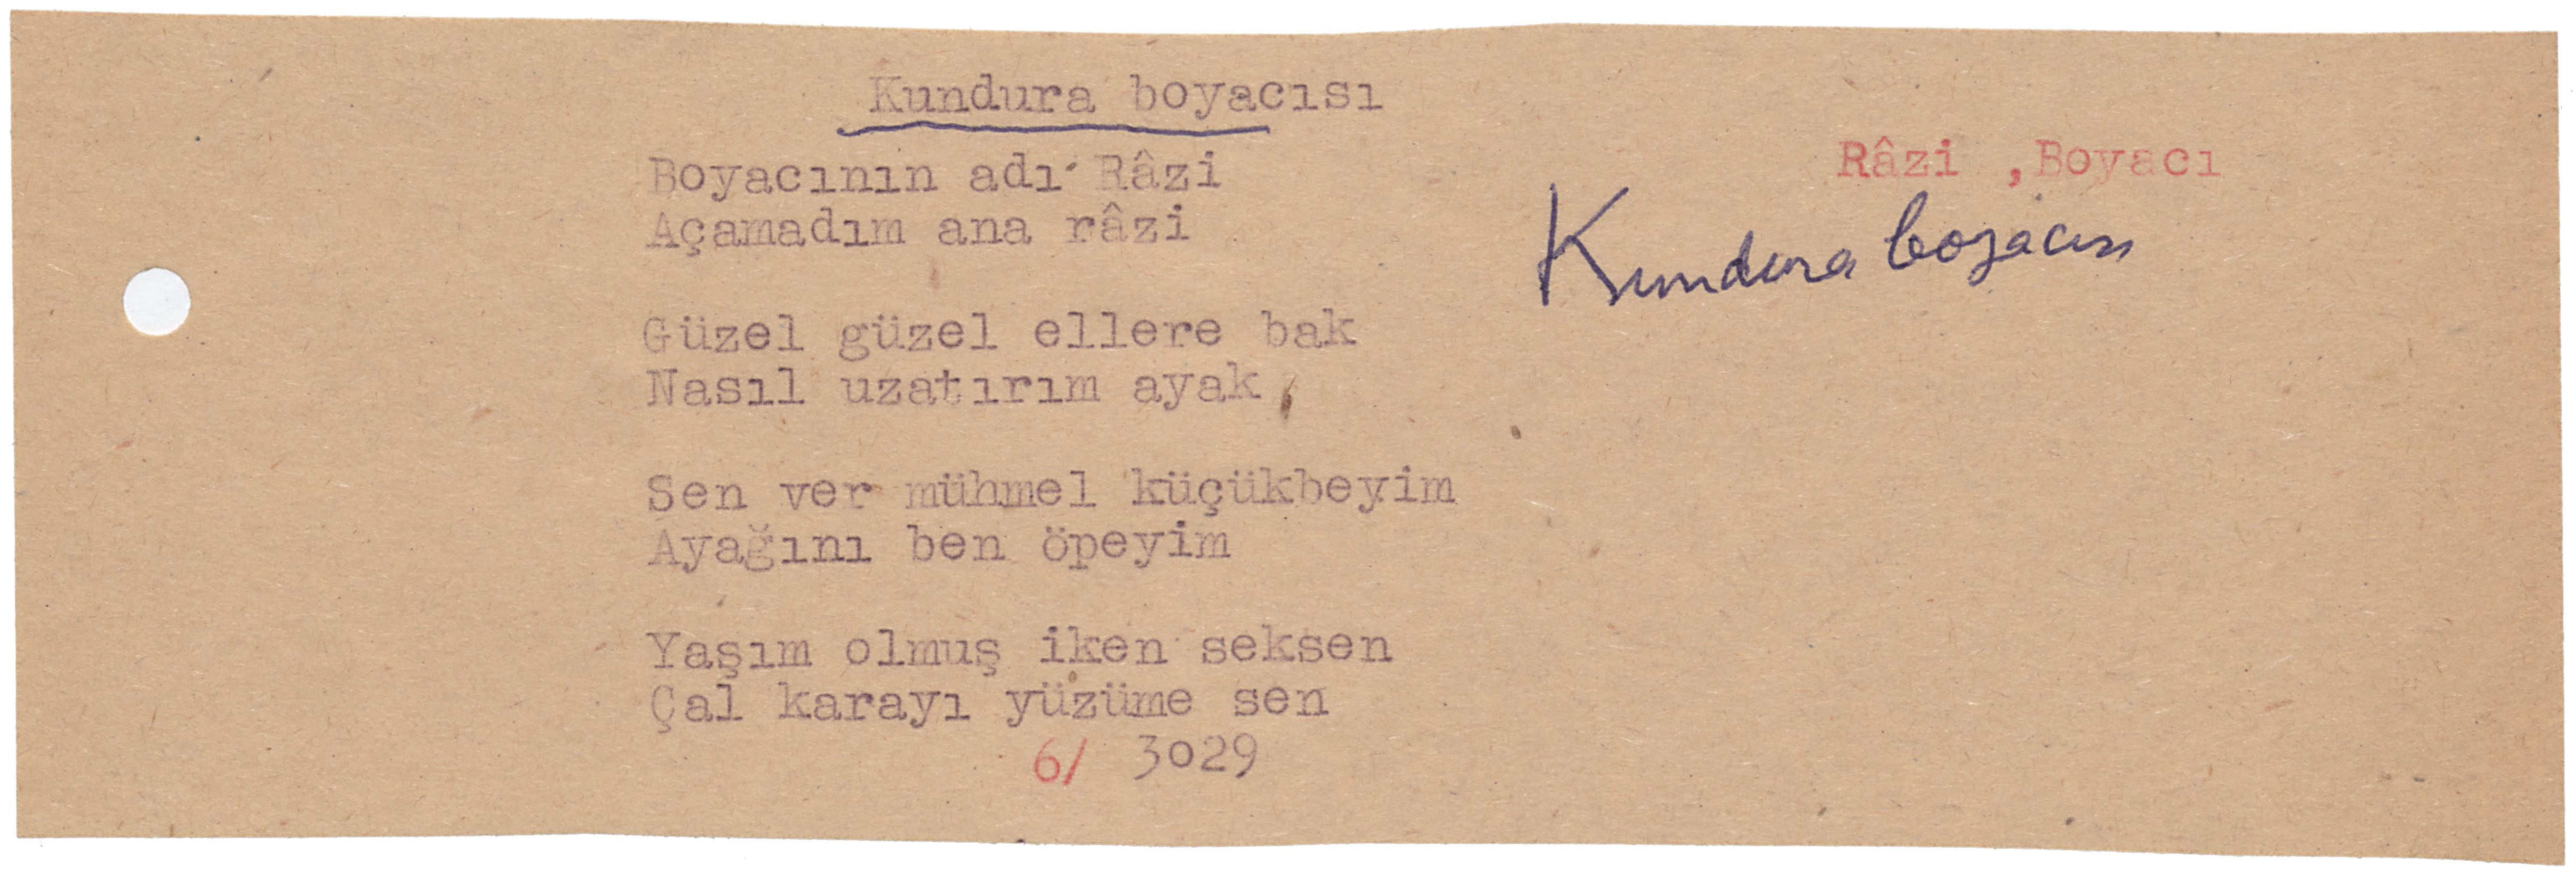 Kundura boyacısı
Râzi ,Boyacı
Kundura boyacısı
Boyacının adı Râzi
Açamadım ana râzi
Güzel güzel ellere bak
Nasıl uzatırım ayak
Sen ver mühmel küçükbeyim
Ayağını ben öpeyim
Yaşım olmuş iken seksen
Çal karayı yüzüme sen
6/ 3029